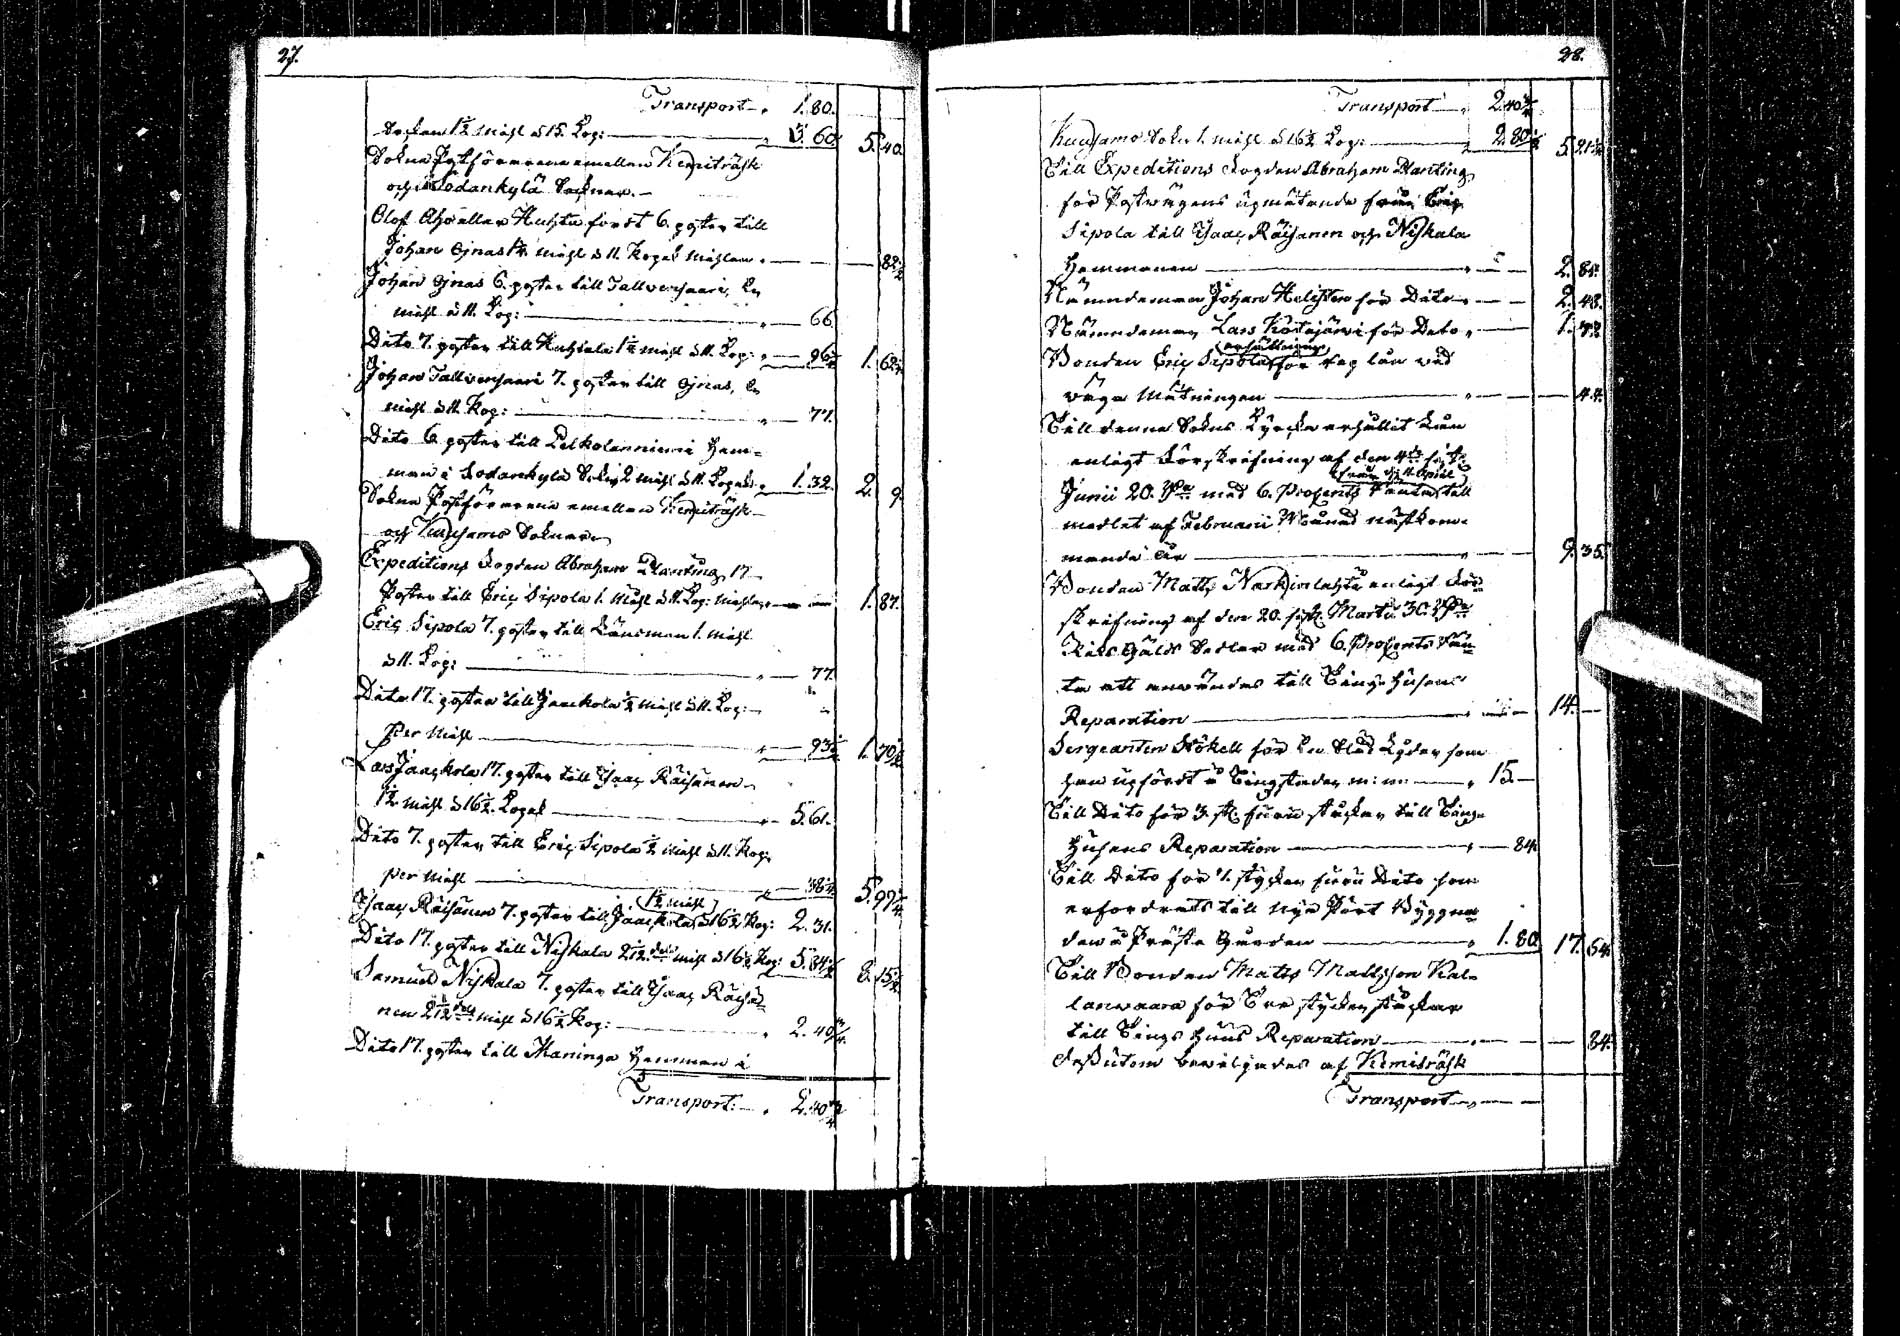 27.
Transport „ 1. 80.
Socken 1½ mihl à 15. Kop: „ 3. 60. 5. 40.
Sokne Postförarena emellan Kemiträsk
och Sodankylä Soknar.
Olof Aho eller Huhta fördt 6. poster till
Johan Ojnas 1¼ mihl à 11. Kopek mihlen „ 82½
Johan Ojnas 6. poster till Tallvensaari, En
mihl à 11. Kop: „ 66.
Dito 7. poster till Huhtala 1¼ mihl à 11. Kop: „ 96¼ 1. 62¼
Johan Tallvensaari 7. poster till Ojnas, En
mihl à 11. Kop: „ 77.
Dito 6. poster till Pelkolanniemi Hem-
man i Sodankylä Sokn 2 mihl à 11. Kopek „ 1. 32. 2. 9.
Sokne Postförarena emellan Kemiträsk
och Kuusamo Soknar
Expeditions Fogden Abraham Planting 17
Poster till Eric Sipola 1. mihl à 11. Kop: mihlen „ 1. 87.
Eric Sipola 7. poster till Länsman 1. mihl
à 11. Kop: „ 77.
Dito 17. poster till Jaackola ½ mihl à 11. Kop:
per mihl „ 93½ 1. 70½
Lars Jaackola 17. poster till Isaac Räisänen
1½ mihl à 16½. Kopek „ 5. 61.
Dito 7. poster till Eric Sipola ½ mihl à 11. Kop:
per mihl „ 38½ 5. 99½
1½ mihl
Isaac Räisänen 7. poster till Jaackola à 16½ Kop: 2. 31.
Dito 17. poster till Niskala 2 1/12 dels mihl à 16½ Kop: 5. 84½ 8. 15½
Samuel Niskala 7. poster till Isaac Räisä-
nen 2 1/12 dels mihl à 16½ Kop: „ 2. 40¾
Dito 17. poster till Maninga Hemman i
Transport: „ 2. 40¾
28.
Transport „ 2. 40¾
Kuusamo Sokn 1. mihl à 16½ Kop: „ 2. 80½ 5. 21¼
Till Expeditions Fogden Abraham Planting
för Postvägens upmätande från Eric
Sipola till Isaac Räisänen och Niskala
Hemmanen „ 2. 85.
Nämndeman Johan Halisten för Dito „ 2. 48.
Nämndeman Lars Köstajärvi för Dito „ 1. 72.
Bonden Eric Sipola för dag lön vid
väga Mätningen „ 44.
Till denna Sokns Kyrcka erhållit Lån
enligt Förskrifning af den 4de sistl.
från d: 4 April
Junii 20. Rd med 6. Procents Ränta till
medlet af Februarii Månad nästkom-
mande år „ 9. 35.
Bonden Matts Narkionlahti enligt För-
skrifning af den 20. sistl. Martii 30. Rd
Riks Gälds Sedlar med 6. Procents Rän-
ta att användas till Tings Husens
Reparation „ 14. —
Sergeanten Stökell för En Slud som
han upfördt å Tingstaden m: m: „ 15. —
Till Dito för 3. st. furu stockar till Tings
Husens Reparation „ 84.
Till Dito för 7. stycken furu Dito som
erfordrats till nya Pört Byggna-
den å Präste Gården „ 1. 80. 17. 64.
Till Bonden Matts Mattsson Kal-
lanvaara för Tre stycken stockar
till Tings Huus Reparation „ 84.
Dessutom bevilgades af Kemiträsk
Transport „